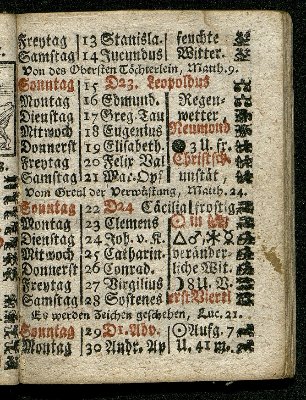 Freytag 13 Stanisla. feuchte
Samstag 14 Jucundus Witter.
Von des Obersten Töchterlein, Matth. 9.
Sonntag 15 D23. Leopoldus
Montag 16 Edmund. Regen-
Dienstag 17 Greg. Tau wetter,
Mitwoch 18 Eugenius Neumond
Donnerst 19 Elisabeth. 3 U. fr.
Freytag 20 Felix Val Christsch.
Samstag 21 Mar. Opf unstät,
Vom Greul der Verwüstung, Matth. 24.
Sonntag 22 D24 Cäcilia frostig,
Montag 23 Clemens ☉ in
Dienstag 24 Joh. v. K. △♂,⚹♀
Mitwoch 25 Catharin. veränder-
Donnerst 26 Conrad. liche Wit.
Freytag 27 Virgilius ☽ 8 U. V.
Samstag 28 Sostenes erst Viertl
Es werden Zeichen geschehen, Luc. 21.
Sonntag 29 D1. Adv. ☉ Aufg. 7
Montag 30 Andr. Ap U. 41 m.